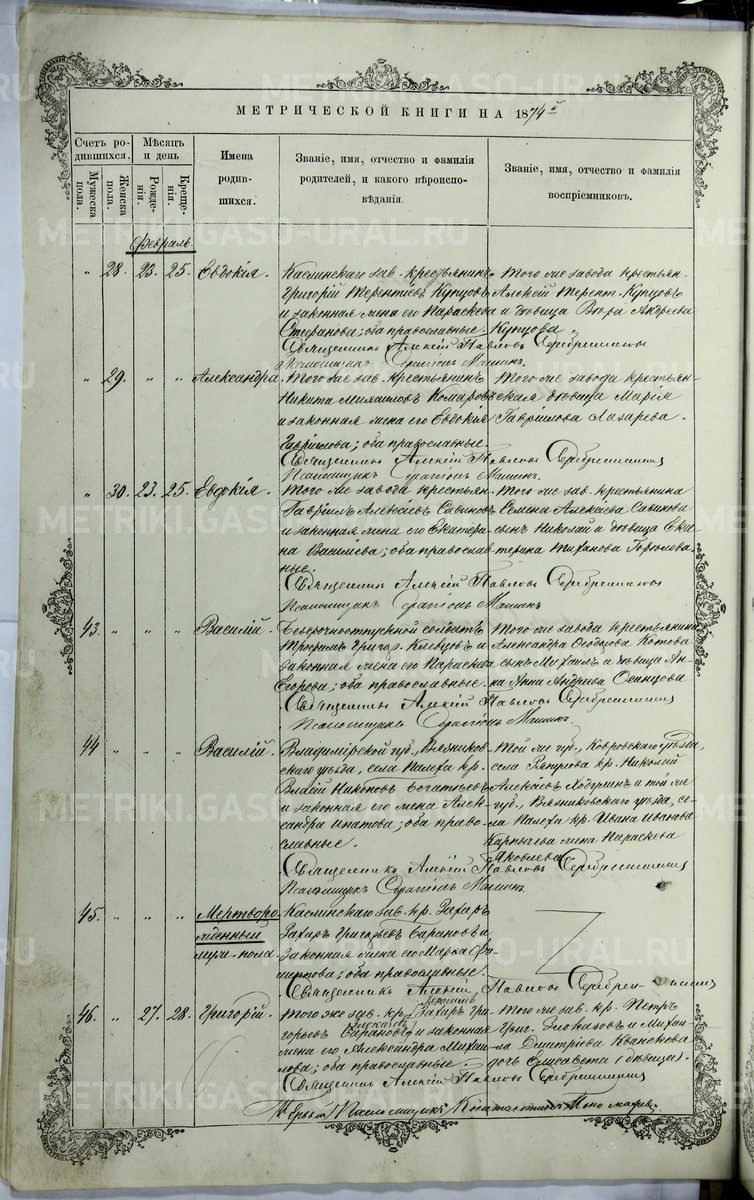 МЕТРИЧЕСКОЙ КНИГИ НА 1874й
Счетъ родившихся.
Мѣсяцъ и день
Имена родившихся.
Званіе, имя, отчество и фамилія родителей, и какого вѣроисповѣданія.
Званіе, имя, отчество и фамилія воспріемниковъ.
Мужеска пола.
Женска пола.
Рожденія.
Крещенія.
Февраль.
" 28. 23. 25. Евдокія.
Каслинскаго зав. крестьянинъ
Григорій Терентіевъ Купцовъ
и законная жена его Параскева
Стефанова; оба православные.
Того же завода крестьян.
Алексій Терент. Купцовъ
и дѣвица Вѣра Андреева
Купцова
Священникъ Алексій Павловъ Серебренниковъ
Псаломщикъ Серапіонъ Машинъ.
" 29. " " Александра.
Того же зав. крестьянинъ
Никита Михаиловъ Комаровъ
и законная жена его Евдокія
Гавріилова; оба православные.
Того же завода крестьян-
ская дѣвица Марія
Гавріилова Лазарева.
Священникъ Алексій Павловъ Серебренниковъ
Псаломщикъ Серапіонъ Машинъ.
" 30. 23. 25. Евдокія.
Того же завода крестьян.
Гавріилъ Алексіевъ Савиновъ
и законная жена его Екатери-
на Васильева; оба православ-
ные.
Того же зав. крестьянина
Семена Алексіева Савинова
сынъ Николай и дѣвица Ека-
терина Тиханова
Священникъ Алексій Павловъ Серебренниковъ
Псаломщикъ Серапіонъ Машинъ
43. " " " Василій.
Безсрочноотпускной солдатъ
Трофимъ Григор. Клевцовъ и
законная жена его Параскева
Егорова; оба православные.
Того же завода крестьянина
Александра Котова
сынъ Михаилъ и дѣвица Ан-
на Андреева
Священникъ Алексій Павловъ Серебренниковъ
Псаломщикъ Серапіонъ Машинъ.
44 " " " Василій.
Владимірской губ., Вязников-
скаго уѣзда, села Палеха кр.
Власій Никоновъ Богатыревъ
и законная его жена Алек-
сандра Ипатова; оба право-
славные.
Той же губ., Ковровскаго уѣзда,
села кр. Николай
Алексіевъ и той же
губ., Вязниковскаго уѣзда, се-
ла Палеха кр. Ивана Иванова
жена Параскева
Яковлева
Священникъ Алексій Павловъ Серебренниковъ
Псаломщикъ Серапіонъ Машинъ.
45. " " " Мертворо-
жденный
муж. пола.
Каслинскаго зав. кр. Захаръ
Захаръ Григорьевъ Барановъ и
законная жена его Марѳа
; оба православные.
Священникъ Алексій Павловъ Серебренниковъ
46. " 27. 28. Григорій.
Того же зав. кр. Захаръ Гри-
горьевъ Барановъ и законная
жена его Александра Михаи-
лова; оба православные.
Того же зав. кр. Петръ
Григ. и Михаи-
ла Дмитріева
дочь Елисавета (дѣвица).
Священникъ Алексій Павловъ Серебренниковъ
Псаломщикъ Константинъ
METRIKI.GASO-URAL.RU